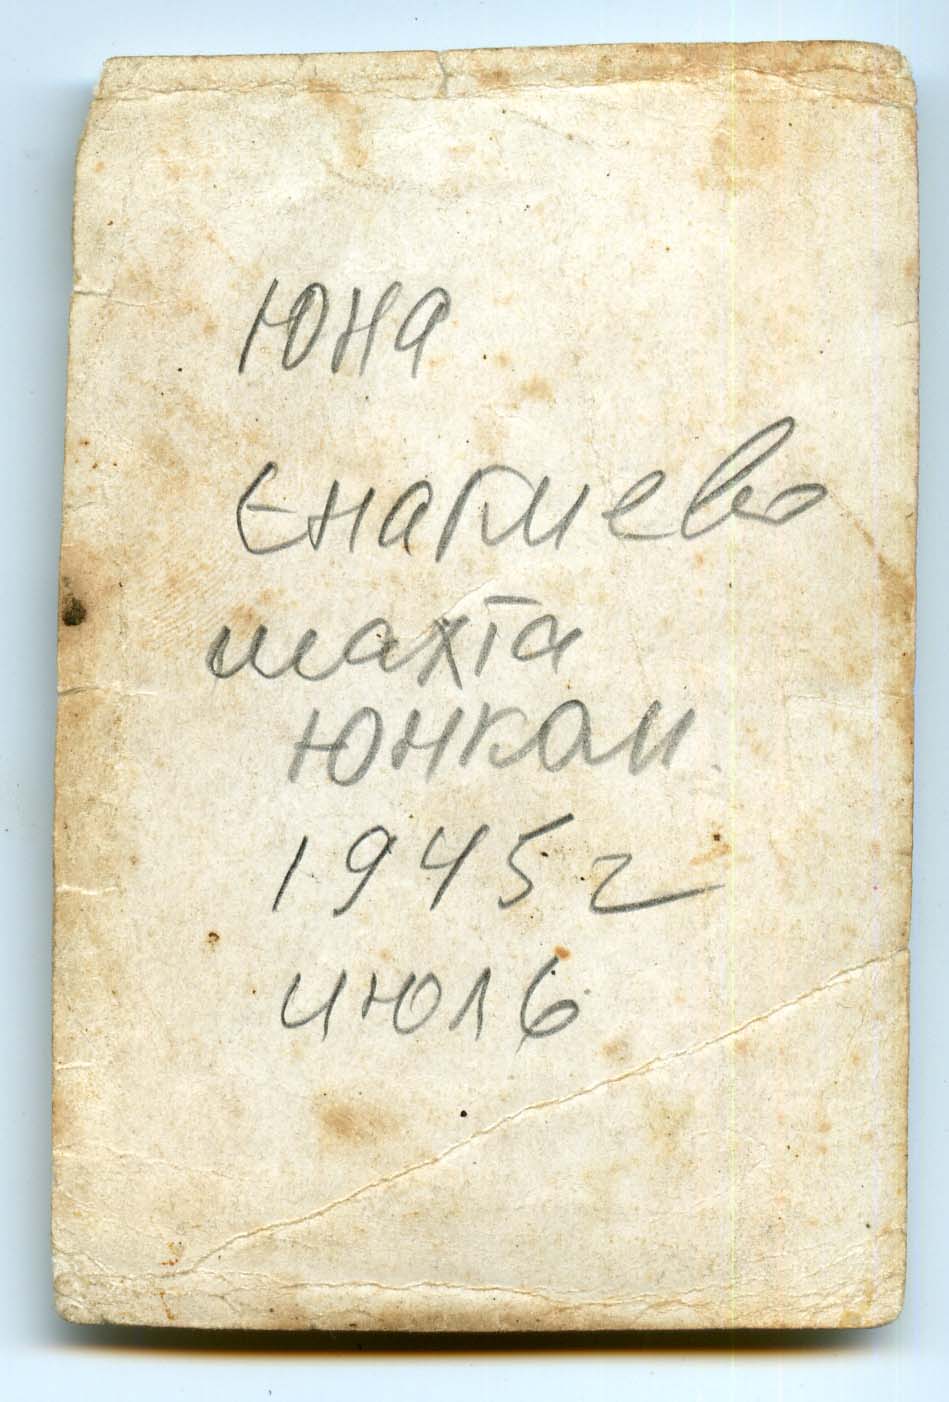 Юна
Енакиево
шахта
Юнком
1945 г
июль